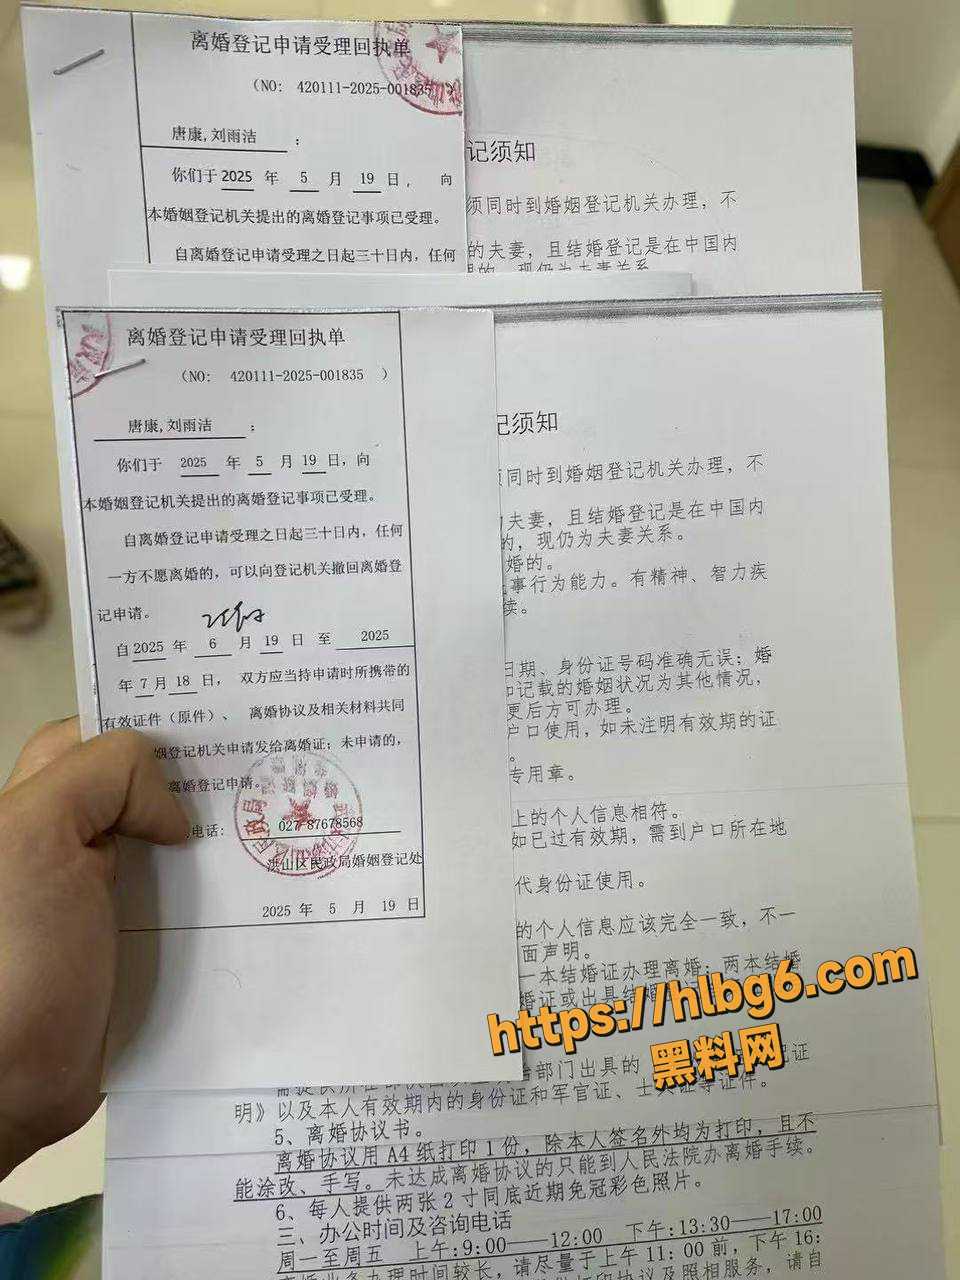 离婚登记申请受理回执单
（NO: 420111-2025-001835 ）
唐康,刘雨洁 ：
你们于 2025 年 5 月 19 日， 向
本婚姻登记机关提出的离婚登记事项已受理。
自离婚登记申请受理之日起三十日内，任何
记须知
须同时到婚姻登记机关办理，不
的夫妻，且结婚登记是在中国内
的，现仍为夫妻关系
离婚登记申请受理回执单
（NO: 420111-2025-001835 ）
唐康,刘雨洁 ：
你们于 2025 年 5 月 19 日，向
本婚姻登记机关提出的离婚登记事项已受理。
自离婚登记申请受理之日起三十日内，任何
一方不愿离婚的，可以向登记机关撤回离婚登
记申请。
自 2025 年 6 月 19 日 至 2025
年 7 月 18 日， 双方应当持申请时所携带的
有效证件（原件）、 离婚协议及相关材料共同
姻登记机关申请发给离婚证；未申请的，
离婚登记申请。
电话： 027-87678568
洪山区民政局婚姻登记处
2025 年 5 月 19 日
记须知
同时到婚姻登记机关办理，不
夫妻，且结婚登记是在中国内
的，现仍为夫妻关系。
婚的。
事行为能力。有精神、智力疾
续。
日期、身份证号码准确无误；婚
记载的婚姻状况为其他情况，
更后方可办理。
户口使用，如未注明有效期的证
。
专用章。
上的个人信息相符。
如已过有效期，需到户口所在地
代身份证使用。
的个人信息应该完全一致，不一
面声明。
一本结婚证办理离婚；两本结婚
婚证或出具结
https://hlbg6.com
黑料网
部门出具的
明》以及本人有效期内的身份证和军官证、士兵证等证件。
5、离婚协议书。
离婚协议用 A4 纸打印 1 份，除本人签名外均为打印，且不
能涂改、手写。未达成离婚协议的只能到人民法院办离婚手续。
6、每人提供两张 2 寸同底近期免冠彩色照片。
三、办公时间及咨询电话
周一至周五 上午:9:00——12:00 下午:13:30——17:00
离婚业务办理时间较长，请尽量于上午 11：00 前，下午 16：
打印协议及照相服务，请自